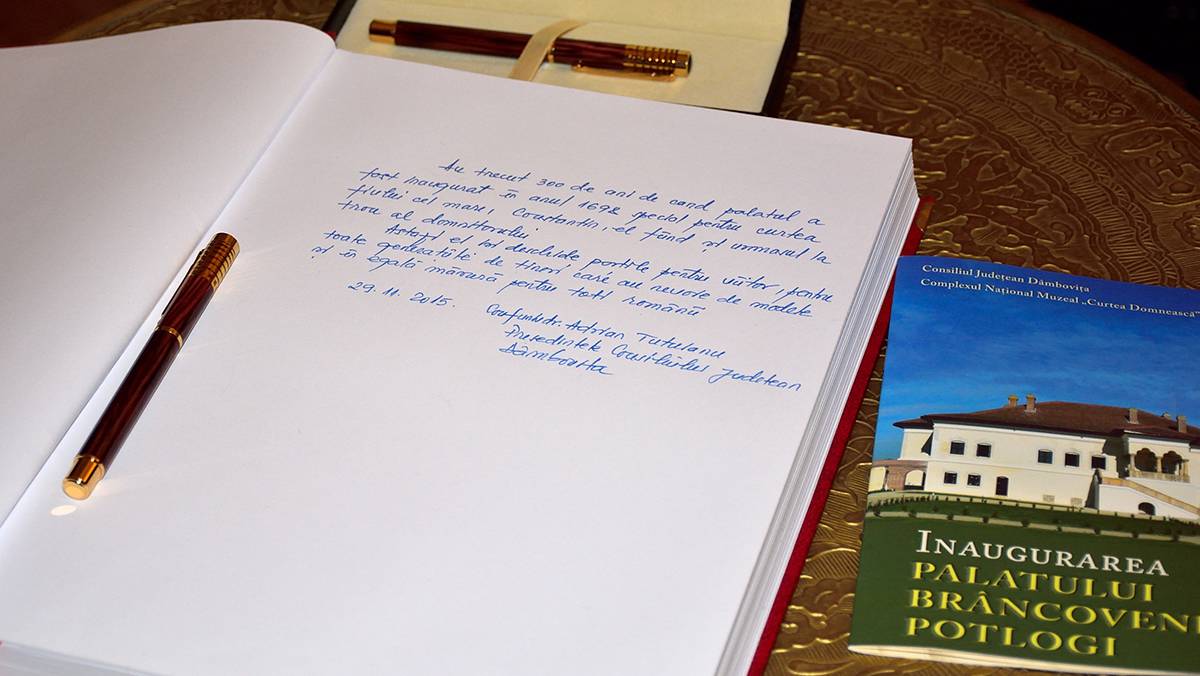 Au trecut 300 de ani de cand palatul a
fost inaugurat în anul 1698 special pentru curtea
fiului cel mare, Constantin, el fiind și urmasul la
tron al domnitorului.
Astazi, el isi deschide portile pentru viitor, pentru
toate generatiile de tineri care au nevoie de modele
și în egală măsură pentru toti românii
29.11.2015.
Adrian Tutuianu
Presedintele Consiliului Judetean
Dâmbovita
Consiliul Județean Dâmbovița
Complexul Național Muzeal „Curtea Domnească”
INAUGURAREA
PALATULUI
BRÂNCOVEN
POTLOGI